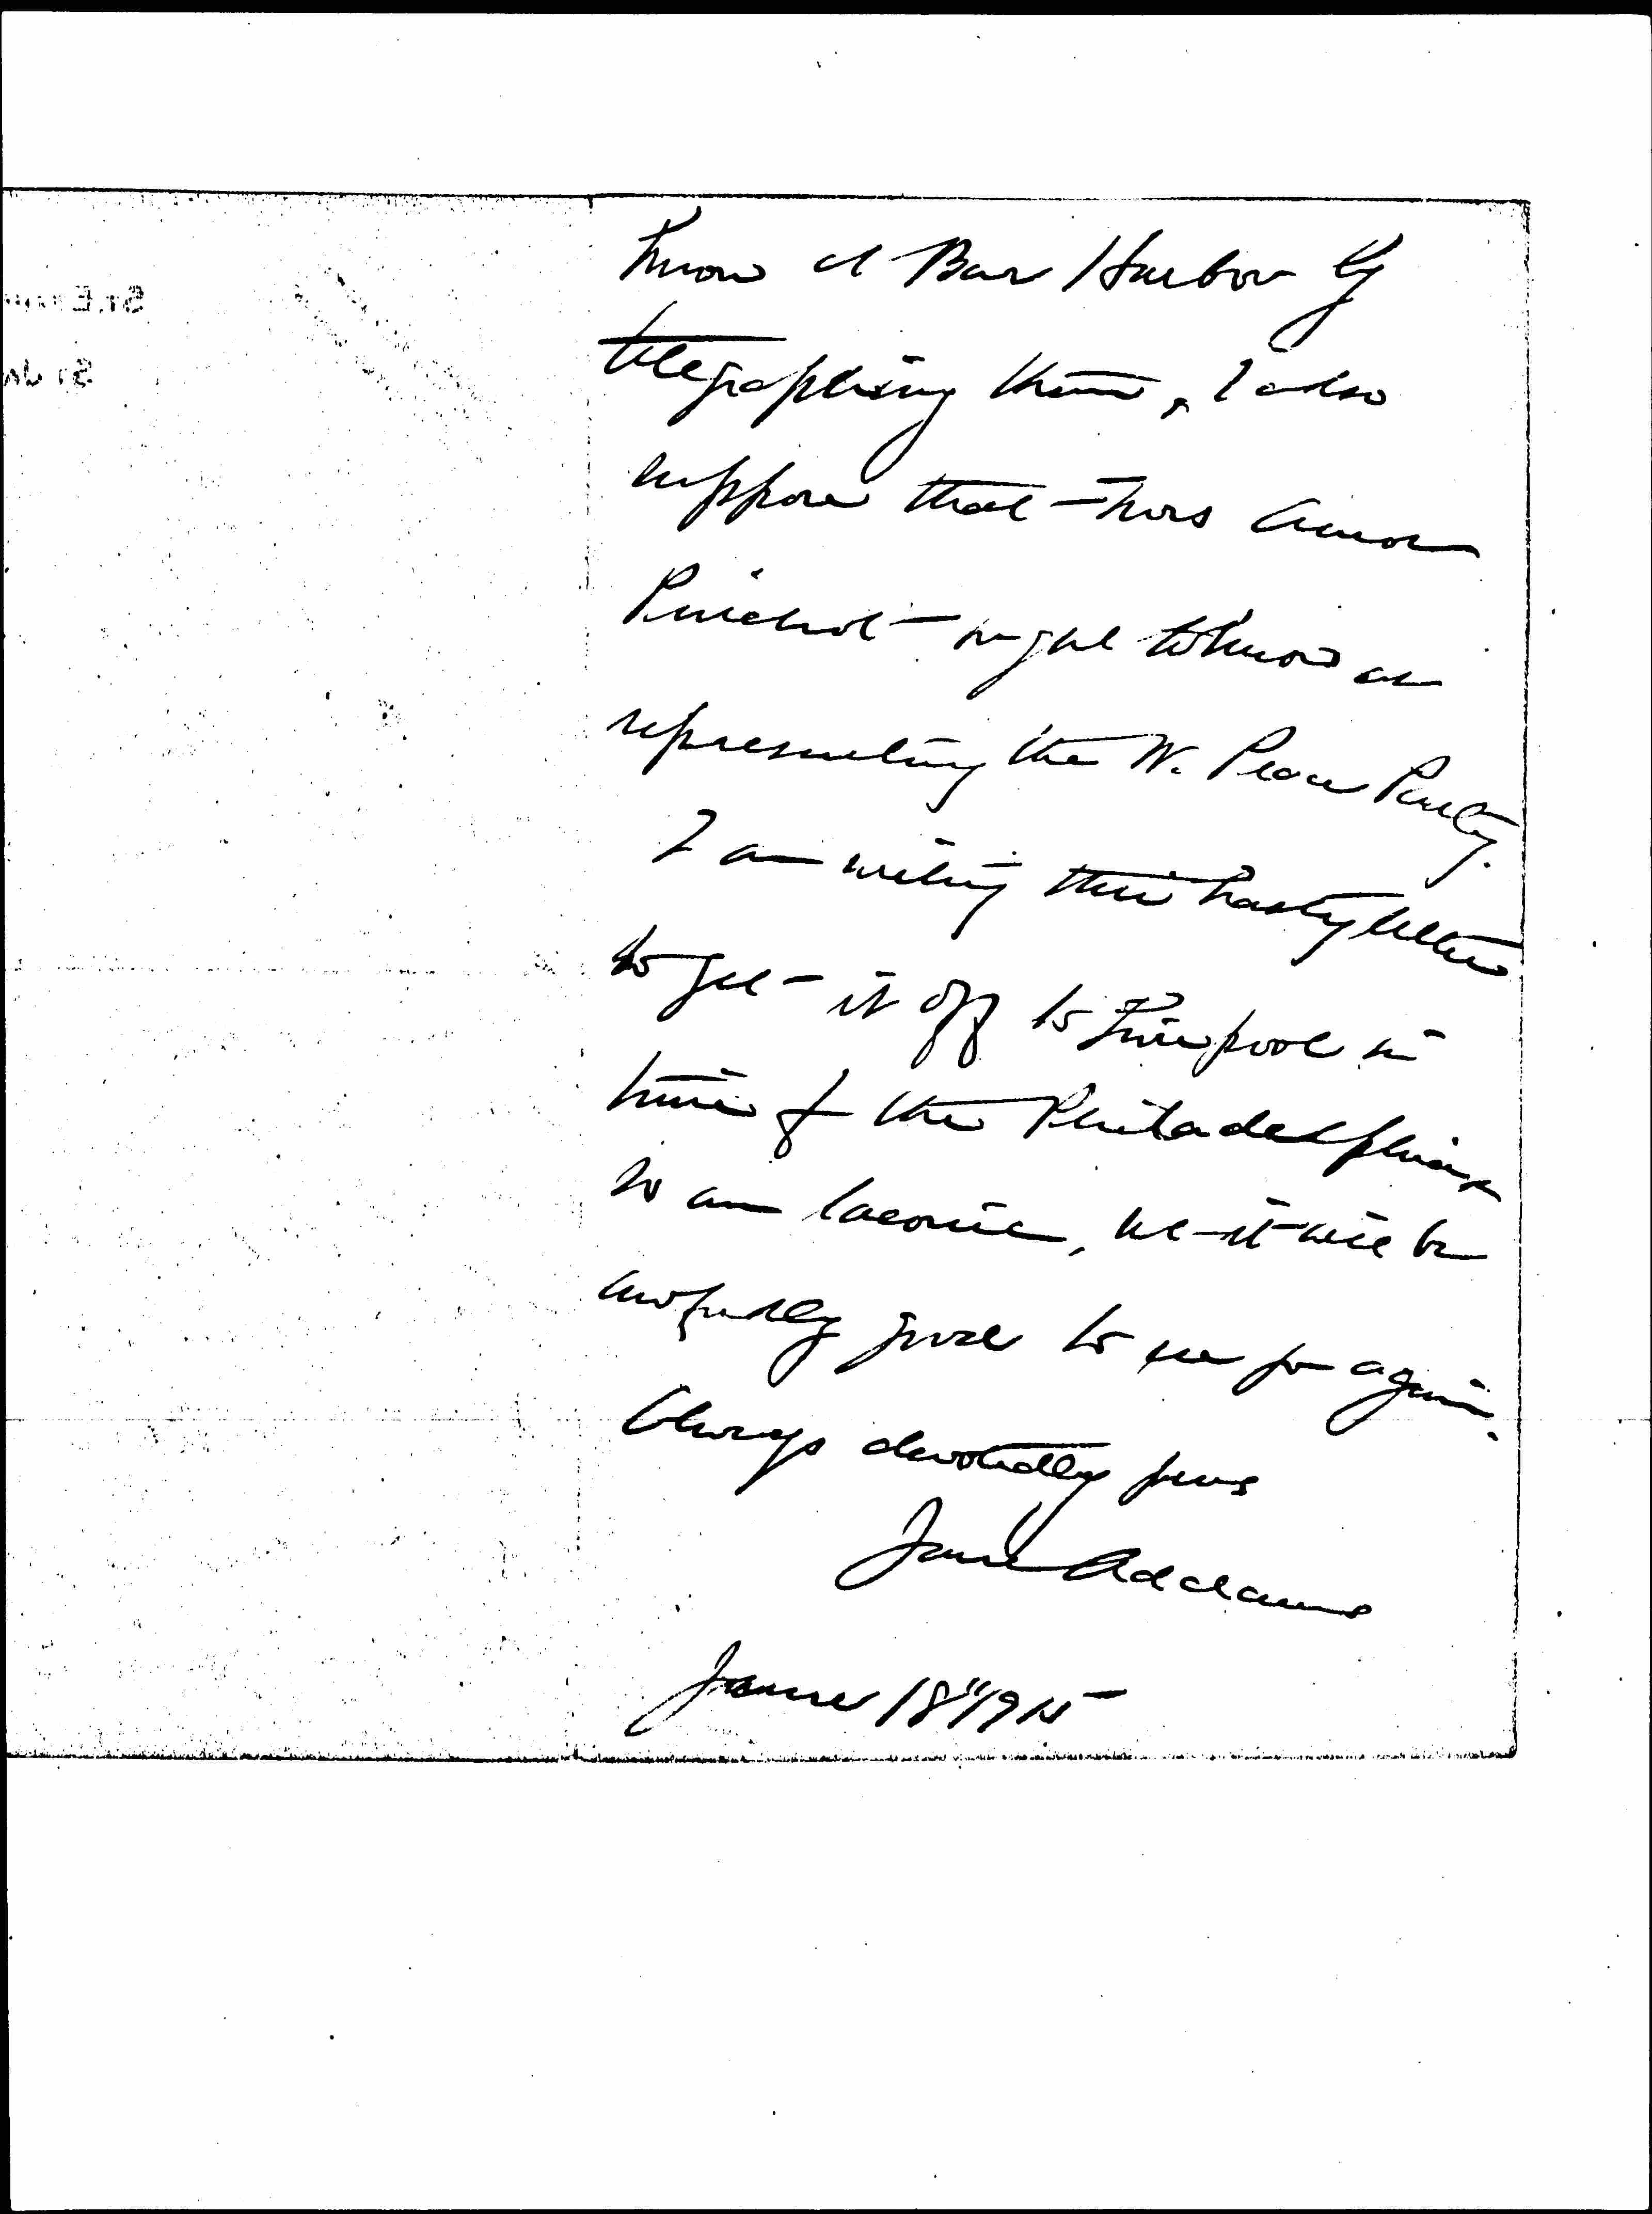 know at Bar Harbor by
telegraphing them, I also
suppose that Mrs Amos
Pinchot ought to know as
representing the W. Peace Party.
I am writing this hasty letter
to get it off to Liverpool in
time for the Philadelphia &
so am laconic, but it will be
awfully good to see you again.
Always devotedly yours
Jane Addams
June 18" 1915